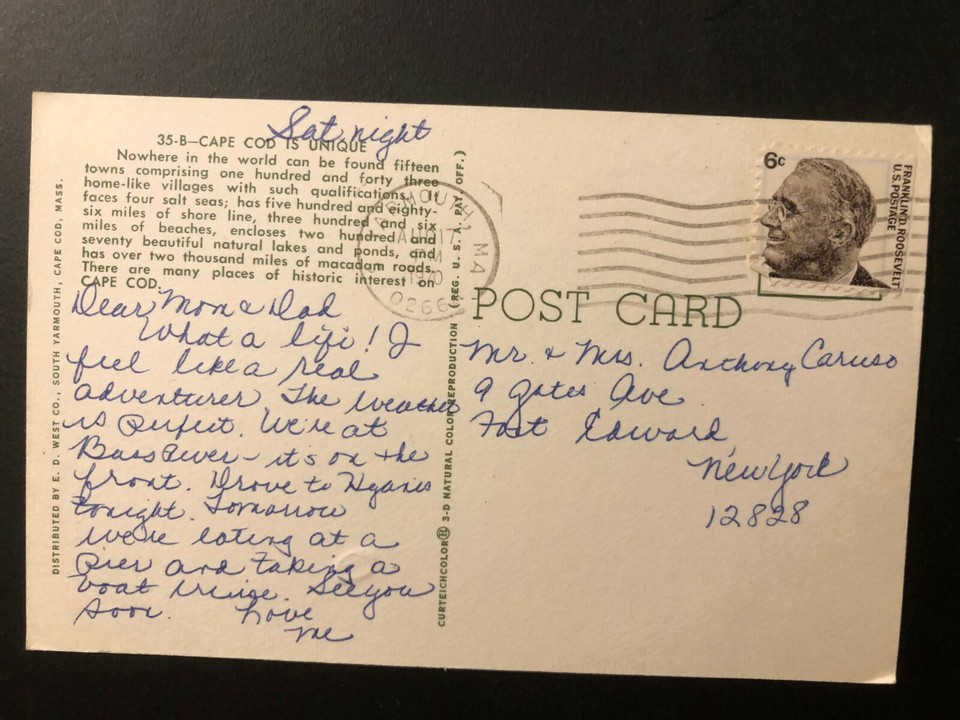 Sat. night
35-B—CAPE COD IS UNIQUE
Nowhere in the world can be found fifteen
towns comprising one hundred and forty three
home-like villages with such qualifications. It
faces four salt seas; has five hundred and eighty-
six miles of shore line, three hundred and six
miles of beaches, encloses two hundred and
seventy beautiful natural lakes and ponds, and
has over two thousand miles of macadam roads.
There are many places of historic interest on
CAPE COD.
Dear Mom & Dad
What a life! I
feel like a real
adventurer. The weather
is perfect. We're at
Bass River - it's on the
front. Drove to Hyannis
tonight. Tomorrow
we're eating at a
pier and taking a
boat cruise. See you
soon. Love
me
DISTRIBUTED BY E. D. WEST CO., SOUTH YARMOUTH, CAPE COD, MASS.
CURTEICHCOLOR® 3-D NATURAL COLOR REPRODUCTION (REG. U. S. A. PAT. OFF.)
YARMOUTH, MA
AUG 17
PM
1970
0266
6c
FRANKLIN D ROOSEVELT
U.S. POSTAGE
POST CARD
Mr. & Mrs. Anthony Caruso
9 Gates Ave
Fort Edward
New York
12828